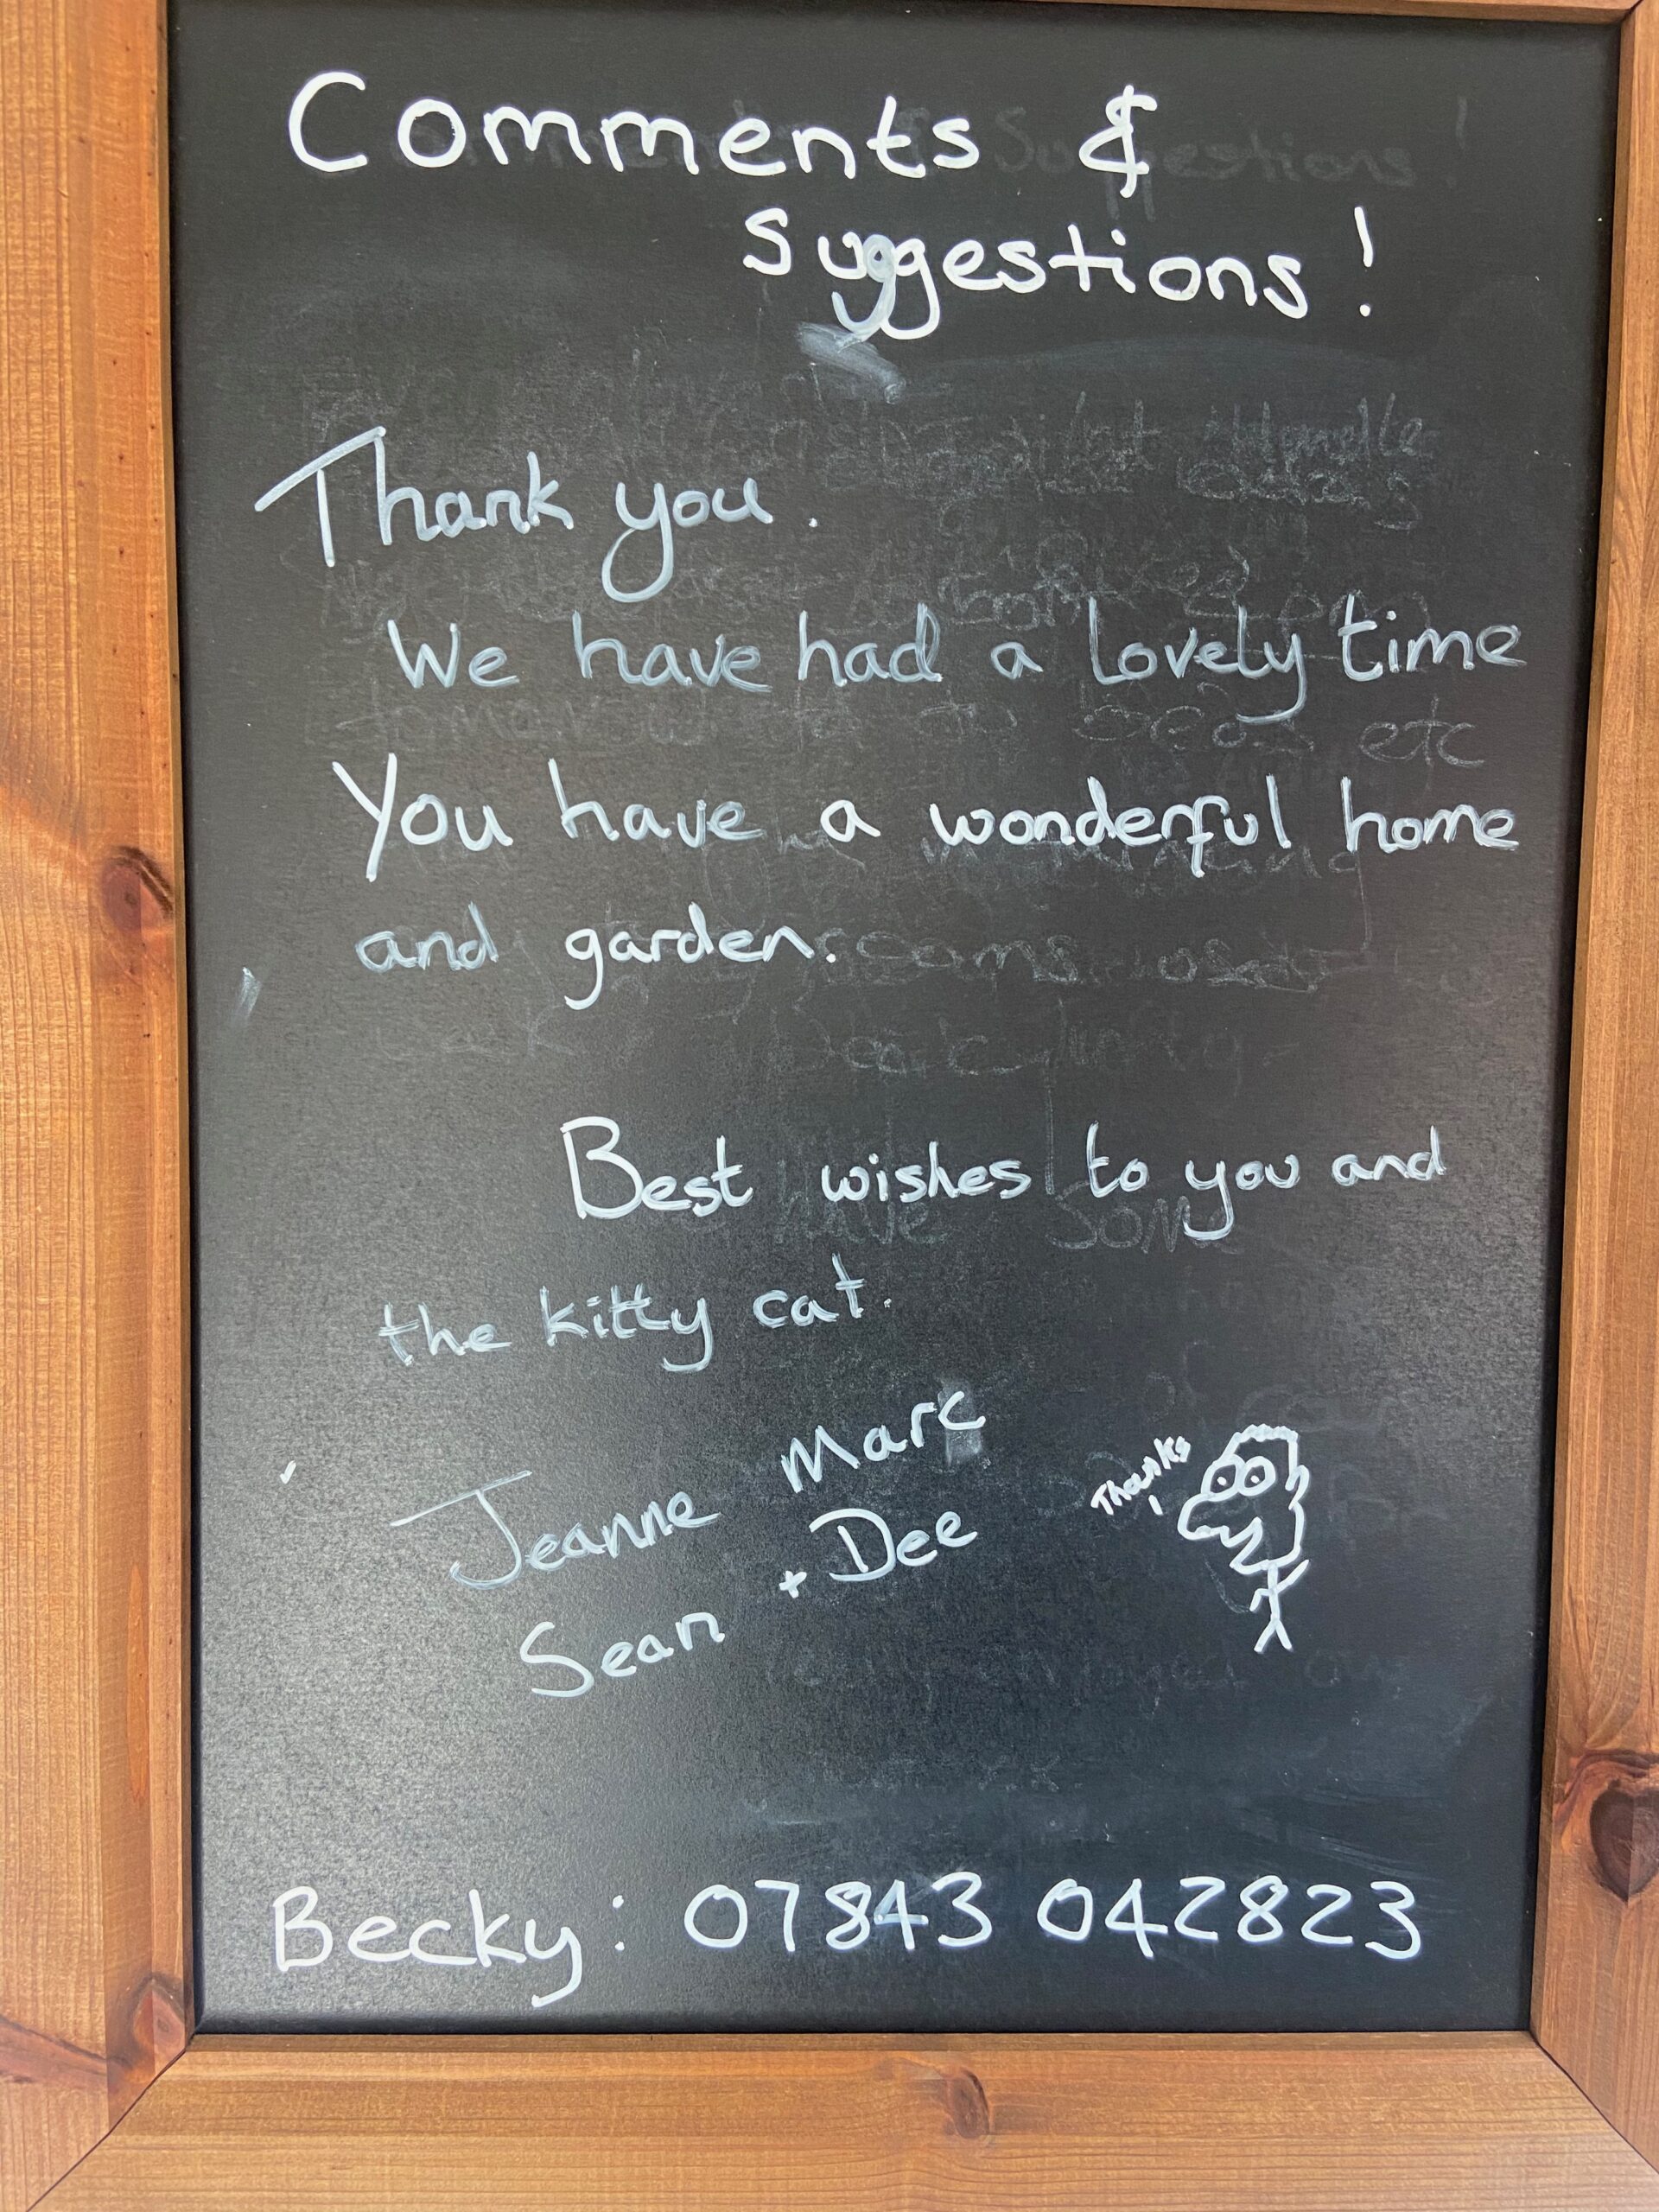 Comments &
Suggestions!
Thank you.
We have had a lovely time
You have a wonderful home
and garden.
Best wishes to you and
the kitty cat.
Jeanne Marc
Sean + Dee
Thanks!
Becky: 07843 042823